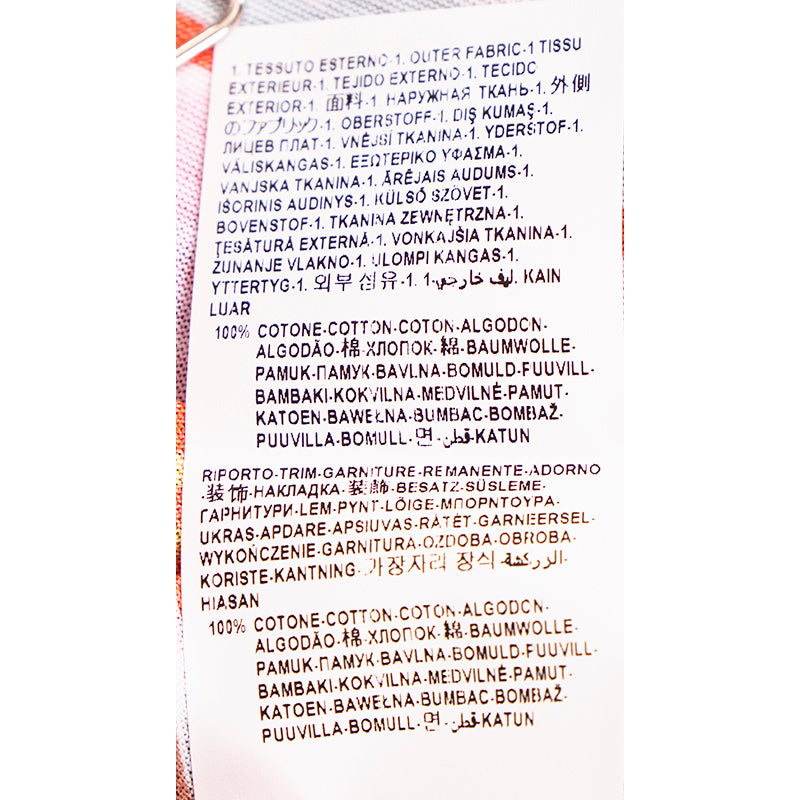 1. TESSUTO ESTERNO-1. OUTER FABRIC-1 TISSU
EXTERIEUR-1. TEJIDO EXTERNO-1. TECIDO
EXTERIOR-1. 面料-1. НАРУЖНАЯ ТКАНЬ-1. 外側
のファブリック-1. OBERSTOFF-1. DIŞ KUMAŞ-1.
ЛИЦЕВ ПЛАТ-1. VNĚJSÍ TKANINA-1. YDERSTOF-1.
VÄLISKANGAS-1. ΕΞΩΤΕΡΙΚΟ ΥΦΑΣΜΑ-1.
VANJSKA TKANINA-1. ĀRĒJAIS AUDUMS-1.
IŠORINIS AUDINYS-1. KÜLSŐ SZÖVET-1.
BOVENSTOF-1. TKANINA ZEWNĘTRZNA-1.
ŢESĂTURĂ EXTERNĂ-1. VONKAJŠIA TKANINA-1.
ZUNANJE VLAKNO-1. ULOMPI KANGAS-1.
YTTERTYG-1. 외부 섬유-1. 1-ليف خارجي. KAIN
LUAR
100% COTONE-COTTON-COTON-ALGODON-
ALGODÃO-棉-ХЛОПОК-綿-BAUMWOLLE-
PAMUK-ПАМУК-BAVLNA-BOMULD-FUUVILL-
BAMBAKI-KOKVILNA-MEDVILNĖ-PAMUT-
KATOEN-BAWEŁNA-BUMBAC-BOMBAŽ-
PUUVILLA-BOMULL-면-قطن-KATUN
RIPORTO-TRIM-GARNITURE-REMANENTE-ADORNO
-装饰-НАКЛАДКА-装飾-BESATZ-SÜSLEME-
ГАРНИТУРИ-LEM-PYNT-LÕIGE-ΜΠΟΡΝΤΟΥΡΑ-
UKRAS-APDARE-APSIUVAS-RÁTÉT-GARNEERSEL-
WYKOŃCZENIE-GARNITURA-OZDOBA-OBROBA-
KORISTE-KANTNING-가장자리 장식-الزركشة-
HIASAN
100% COTONE-COTTON-COTON-ALGODON-
ALGODÃO-棉-ХЛОПОК-綿-BAUMWOLLE-
PAMUK-ПАМУК-BAVLNA-BOMULD-FUUVILL-
BAMBAKI-KOKVILNA-MEDVILNĖ-PAMUT-
KATOEN-BAWEŁNA-BUMBAC-BOMBAŽ-
PUUVILLA-BOMULL-면-قطن-KATUN